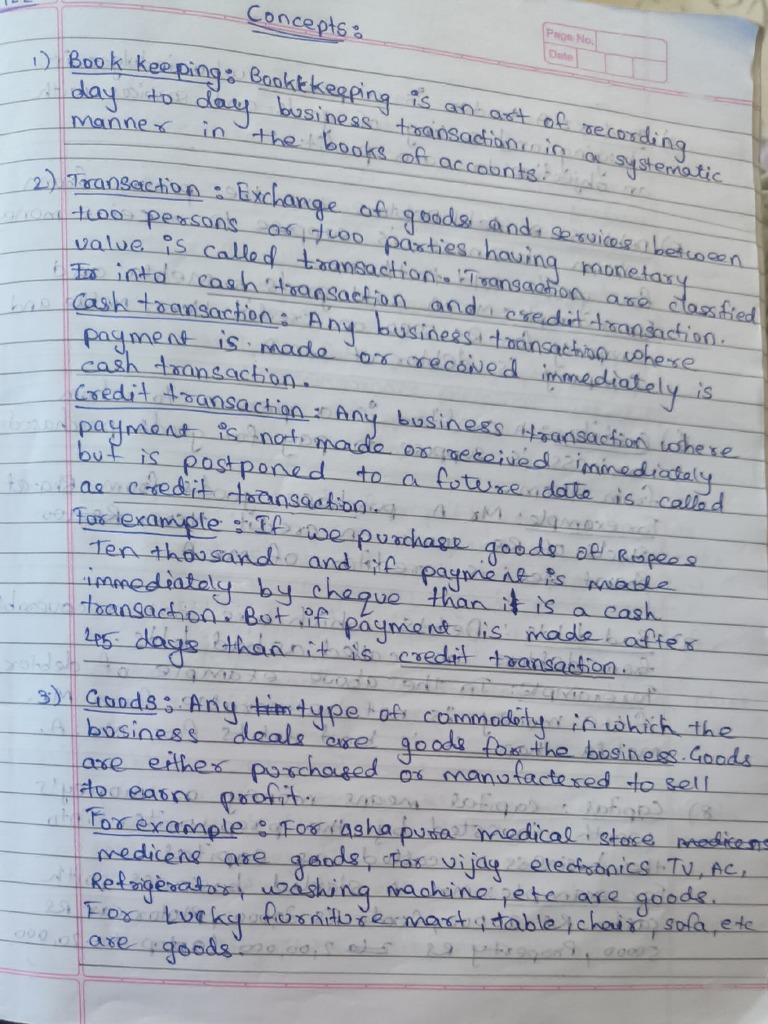 Concepts:
Page No.
Date
1) Book keeping: Bookkkeeping is an art of recording
day to day business transaction in a systematic
manner in the books of accounts.
2) Transaction: Exchange of goods and services between
two persons or two parties having monetary
value is called transaction. Transaction are classfied
into cash transaction and credit transaction.
Cash transaction: Any business transaction where
payment is made or received immediately is
cash transaction.
Credit transaction: Any business transaction where
payment is not made or received immediately
but is postponed to a future date is called
as credit transaction.
For example: If we purchase goods of Rupees
Ten thousand and if payment is made
immediately by cheque than it is a cash
transaction. But if payment is made after
45 days than it is credit transaction.
3) Goods: Any type of commodity in which the
business deals are goods for the business. Goods
are either purchased or manufactered to sell
to earn profit.
For example: For ashapura medical store medicens
medicens are goods, For vijay electronics TV, AC,
Refrigerator, washing machine, etc are goods.
For Lucky furniture mart, table, chair, sofa, etc
are goods.